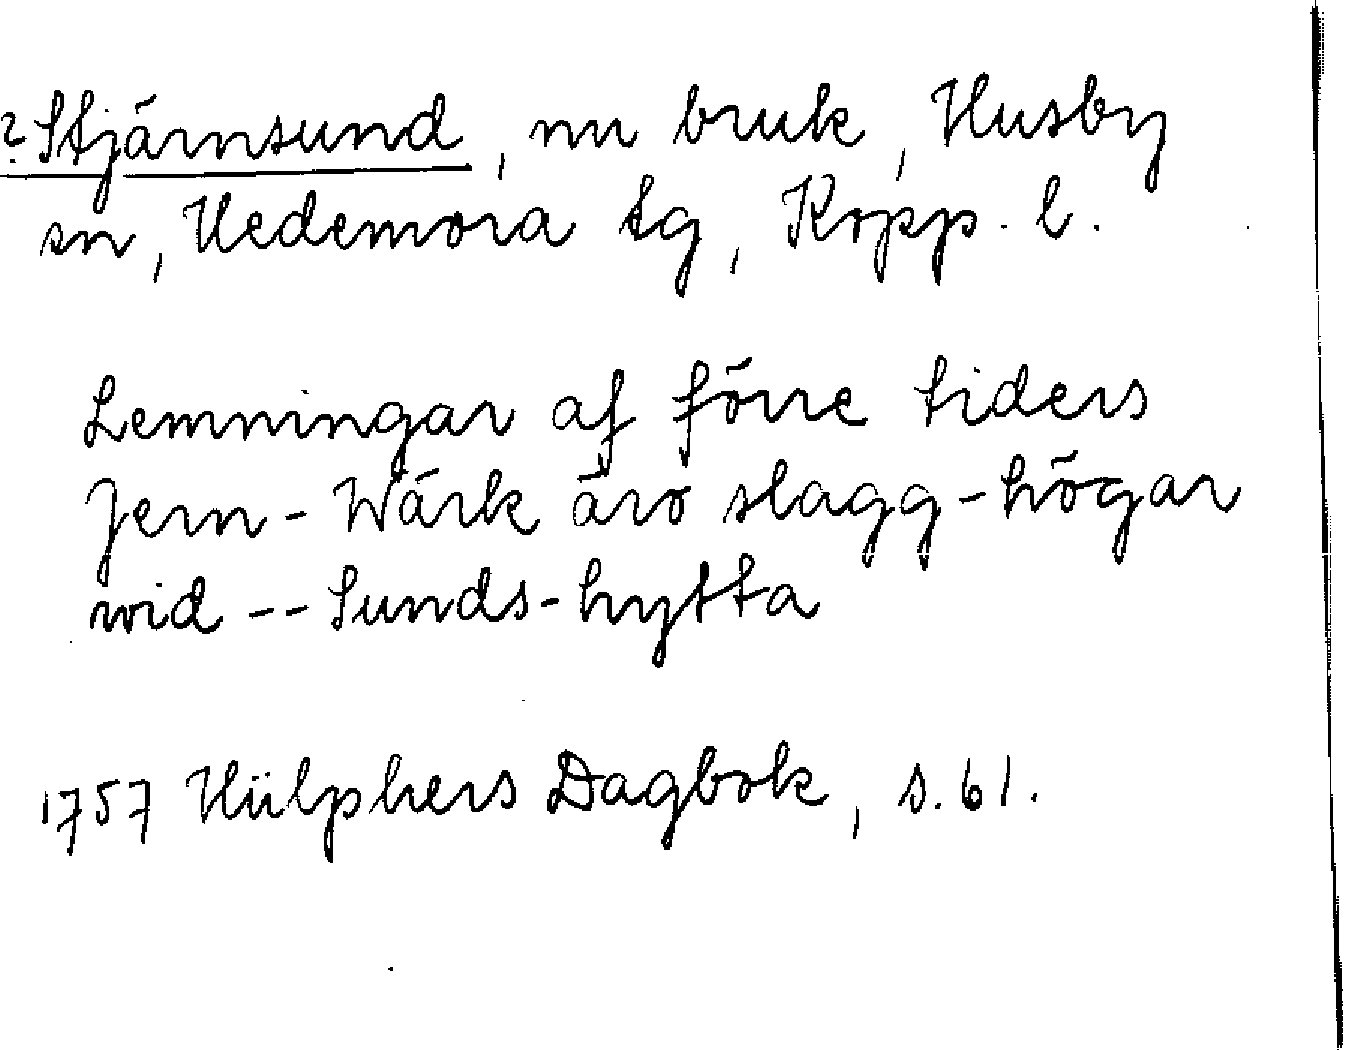 ? Stjärnsund, nu bruk, Husby
sn, Hedemora tg, Kopp. l.
Lemningar af förre tiders
Jern-Wärk äro slagg-högar
wid -- Sunds-hytta
1757 Hülphers Dagbok, s. 61.